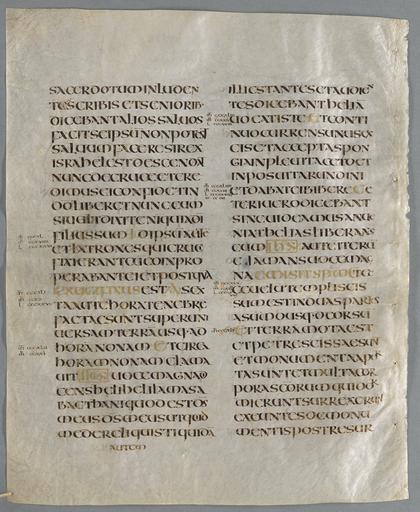 SACERDOTUM INLUDEN
TES CRIBIS ET SENIORIB·
DICEBANT ALIOS SALUOS
FACIT SEIPSŪ NON POTEST
SALUUM FACERE SI REX
ISRAHEL EST DESCENDAT
NUNC DE CRUCE ET CRE
DIMUS EI CONFIDET IN
DŌ LIBERET NUNC EUM
SI UULT DIXIT ENIM QUIA DĪ
FILIUS SUM IDIPSUM AUTĒ
ET LATRONES QUI CRUCI
FIXI ERANT CUM EO INPRO
PERABANT EI ET POSTQUĀ
CRUCIFIXUS EST A SEX
TA AUTĒ HORA TENEBRE
FACTAE SUNT SUPER UNI
UERSAM TERRA USQ· AD
HORA NONAM ET CIRCA
HORAM NONAM CLAMA
UIT IHS UOCE MAGNA DI
CENS HELI HELI LAMA SA
BACTHANI QUOD EST DS
MEUS DS MEUS UT QUID
ME DERELIQUISTI QUIDĀ
AUTEM
ILLIC STANTES ET AUDIEN
TES DICEBANT HELIĀ
UOCAT ISTE ET CONTI
NUO CURRENS UNUS EX
EIS ET ACCEPTA SPON
GIA INPLEUIT ACETO ET
INPOSUIT ARUNDINI
ET DABAT EI BIBERE CE
TERI UERO DICEBANT
SINE UIDEAMUS AN UE
NIAT HELIAS LIBERANS
EUM IHS AUTĒ ITERŪ
CLAMANS UOCE MAG
NA EMISIT SPM ET
ECCE UELŪ TEMPLI SCIS
SUM EST IN DUAS PARTES
A SUMMO USQ· DEORSŪ
ET TERRA MOTA EST
ET PETRE SCISSAE SUNT
ET MONUMENTA APER
TA SUNT ET MULTA COR
PORA SCORUM QUI DOR
MIERUNT SURREXERUNT
EXEUNTES DE MONU
MENTIS POST RESUR